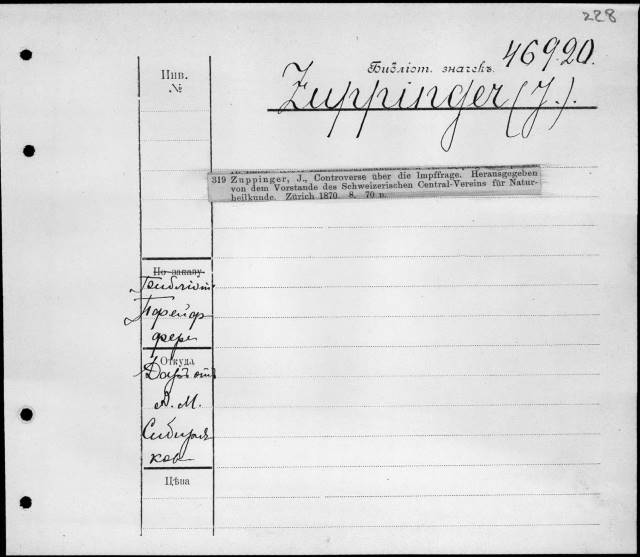 228
46920.
Инв.
№
Библіот. значекъ.
Zuppinger (J.).
319 Zuppinger, J., Controverse über die Impffrage. Herausgegeben
von dem Vorstande des Schweizerischen Central-Vereins für Natur-
heilkunde. Zürich 1870. 8. 70 p.
По заказу
Пфейф
фера
Откуда
Даръ отъ
А. М.
Сибиря
кова
Цѣна